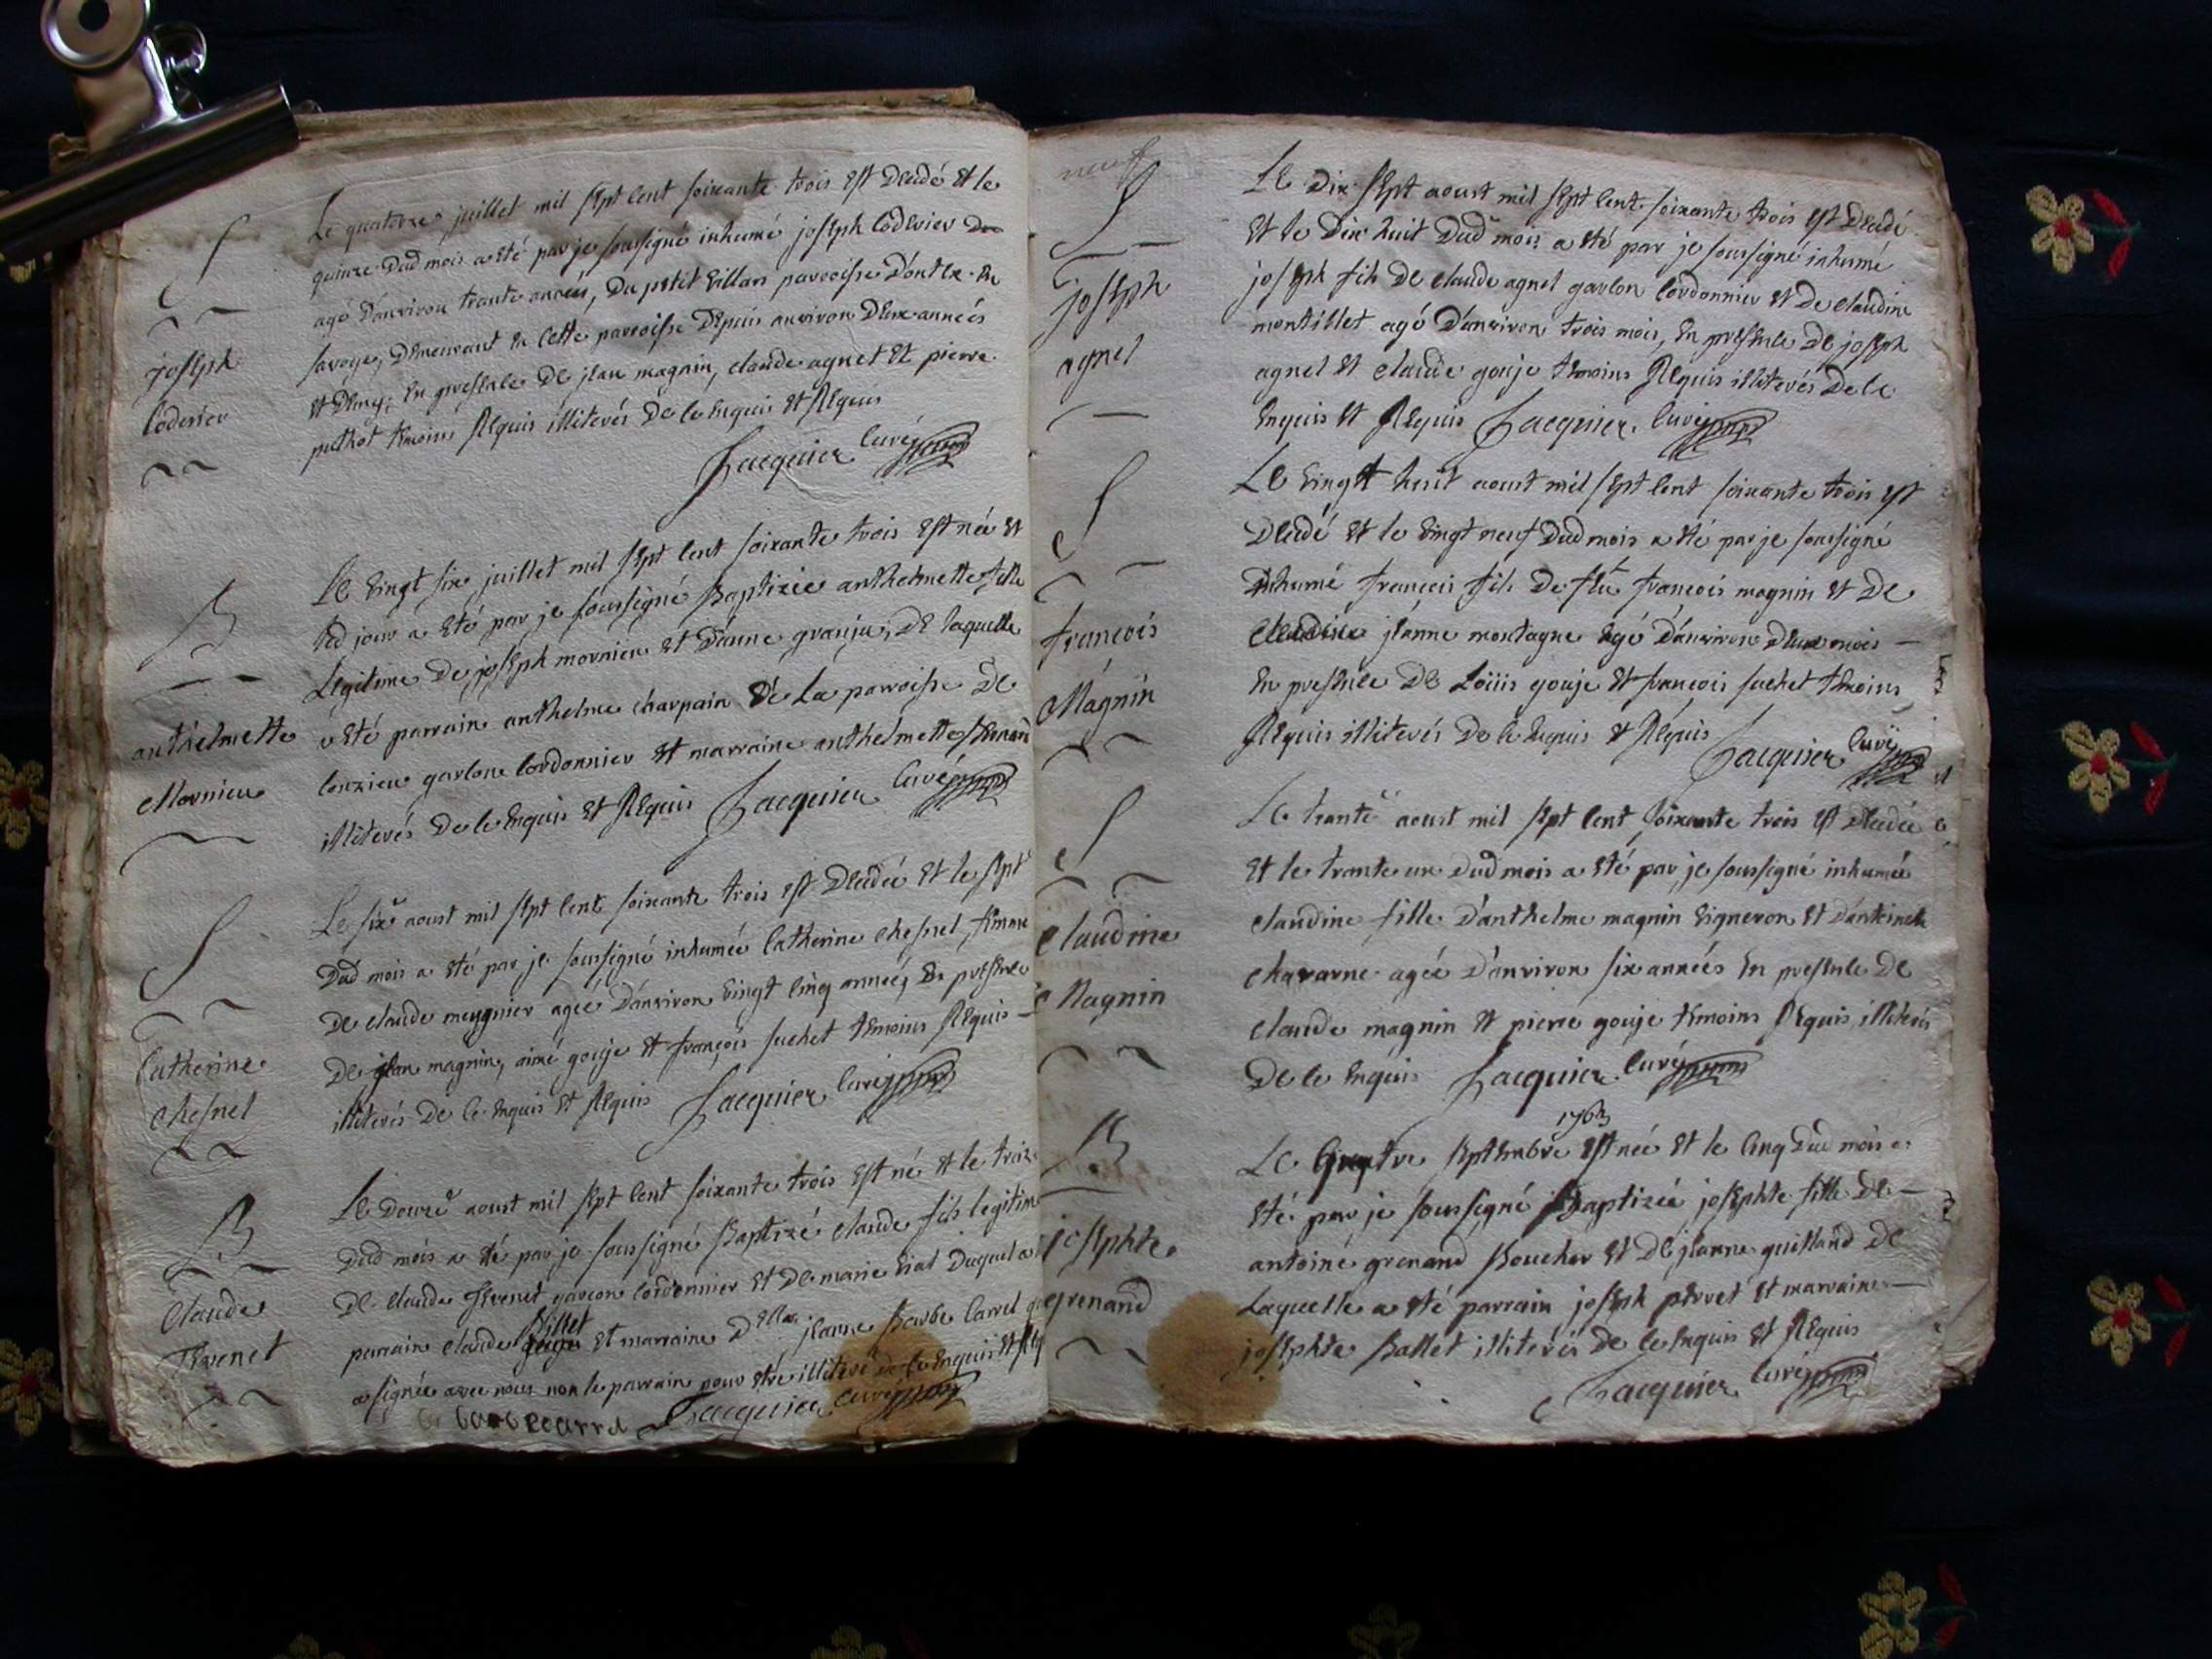 S
joseph
Coderier
Le quatorze juillet mil sept cent soixante trois est decedé et le
quinze dud mois a eté par je soussigné inhumé joseph Coderier
agé d'anviron trante années, du petit villars parroisse en
savoye, demeurant en cette parroisse depuis anviron deux années
et demy; en presence de jean magnin, claude agnet et pierre
temoins requis illiterés de ce enquis et requis
Jacquier curé
B
anthelmette
Mornieu
Le vingt six juillet mil sept cent soixante trois est née et
led jour a eté par je soussigné Baptizée anthelmette fille
Legitime de joseph mornieu et d'anne granju, de laquelle
a eté parrain anthelme charpain de La parroisse de
conzieu garlon cordonnier et marraine anthelmette
illiterés de ce enquis et Requis Jacquier curé
S
Catherine
chesnel
Le six aoust mil sept cent soixante trois est decedée et le sept
dud mois a eté par je soussigné inhumée Catherine chesnel femme
de claude meugnier agée d'anviron vingt cinq années, en presence
de jean magnin, aimé gouje et françois suchet temoins Requis
illiterés de ce enquis et Requis Jacquier curé
B
Claude
Thevenet
Le douze aoust mil sept cent soixante trois est né et le treize
dud mois a eté par je soussigné Baptizé claude fils legitime
de claude garcon cordonnier et de marie vial duquel a
Billet
parrain claude et marraine Delle jeanne Barbe Carrel
a signée avec nous non le parrain pour etre illiteré de ce enquis et
Barbe Carrel Jacquier curé
neuf
S
joseph
agnel
Le dix sept aoust mil sept cent soixante trois est decedé
et le dix huit dud mois a eté par je soussigné inhumé
joseph fils de claude agnel garlon cordonnier et de claudine
montillet agé d'anviron trois mois, en presence de joseph
agnel et claude gouje temoins Requis illiterés de ce
enquis et Requis Jacquier curé
S
francois
Magnin
Le vingt huit aoust mil sept cent soixante trois est
decedé et le vingt neuf dud mois a eté par je soussigné
inhumé francois fils de feu francois magnin et de
jeanne montagne agé d'anviron deux mois
en presence de Loüis gouje et francois suchet temoins
Requis illiterés de ce enquis et Requis Jacquier curé
S
Claudine
Magnin
Le trante aoust mil sept cent soixante trois est decedée
et le trante un dud mois a eté par je soussigné inhumée
claudine fille d'anthelme magnin vigneron et d'antoinette
chavarne agée d'anviron six années en presence de
claude magnin et pierre gouje temoins Requis illiterés
de ce enquis Jacquier curé
B
josephte
grenand
1763
Le quatre septembre est née et le cinq dud mois a
eté par je soussigné Baptizée josephte fille de
antoine grenand Boucher et de jeanne guilland de
Laquelle a eté parrain joseph pervet et marraine
josephte Ballet illiterés de ce enquis et Requis
Jacquier curé